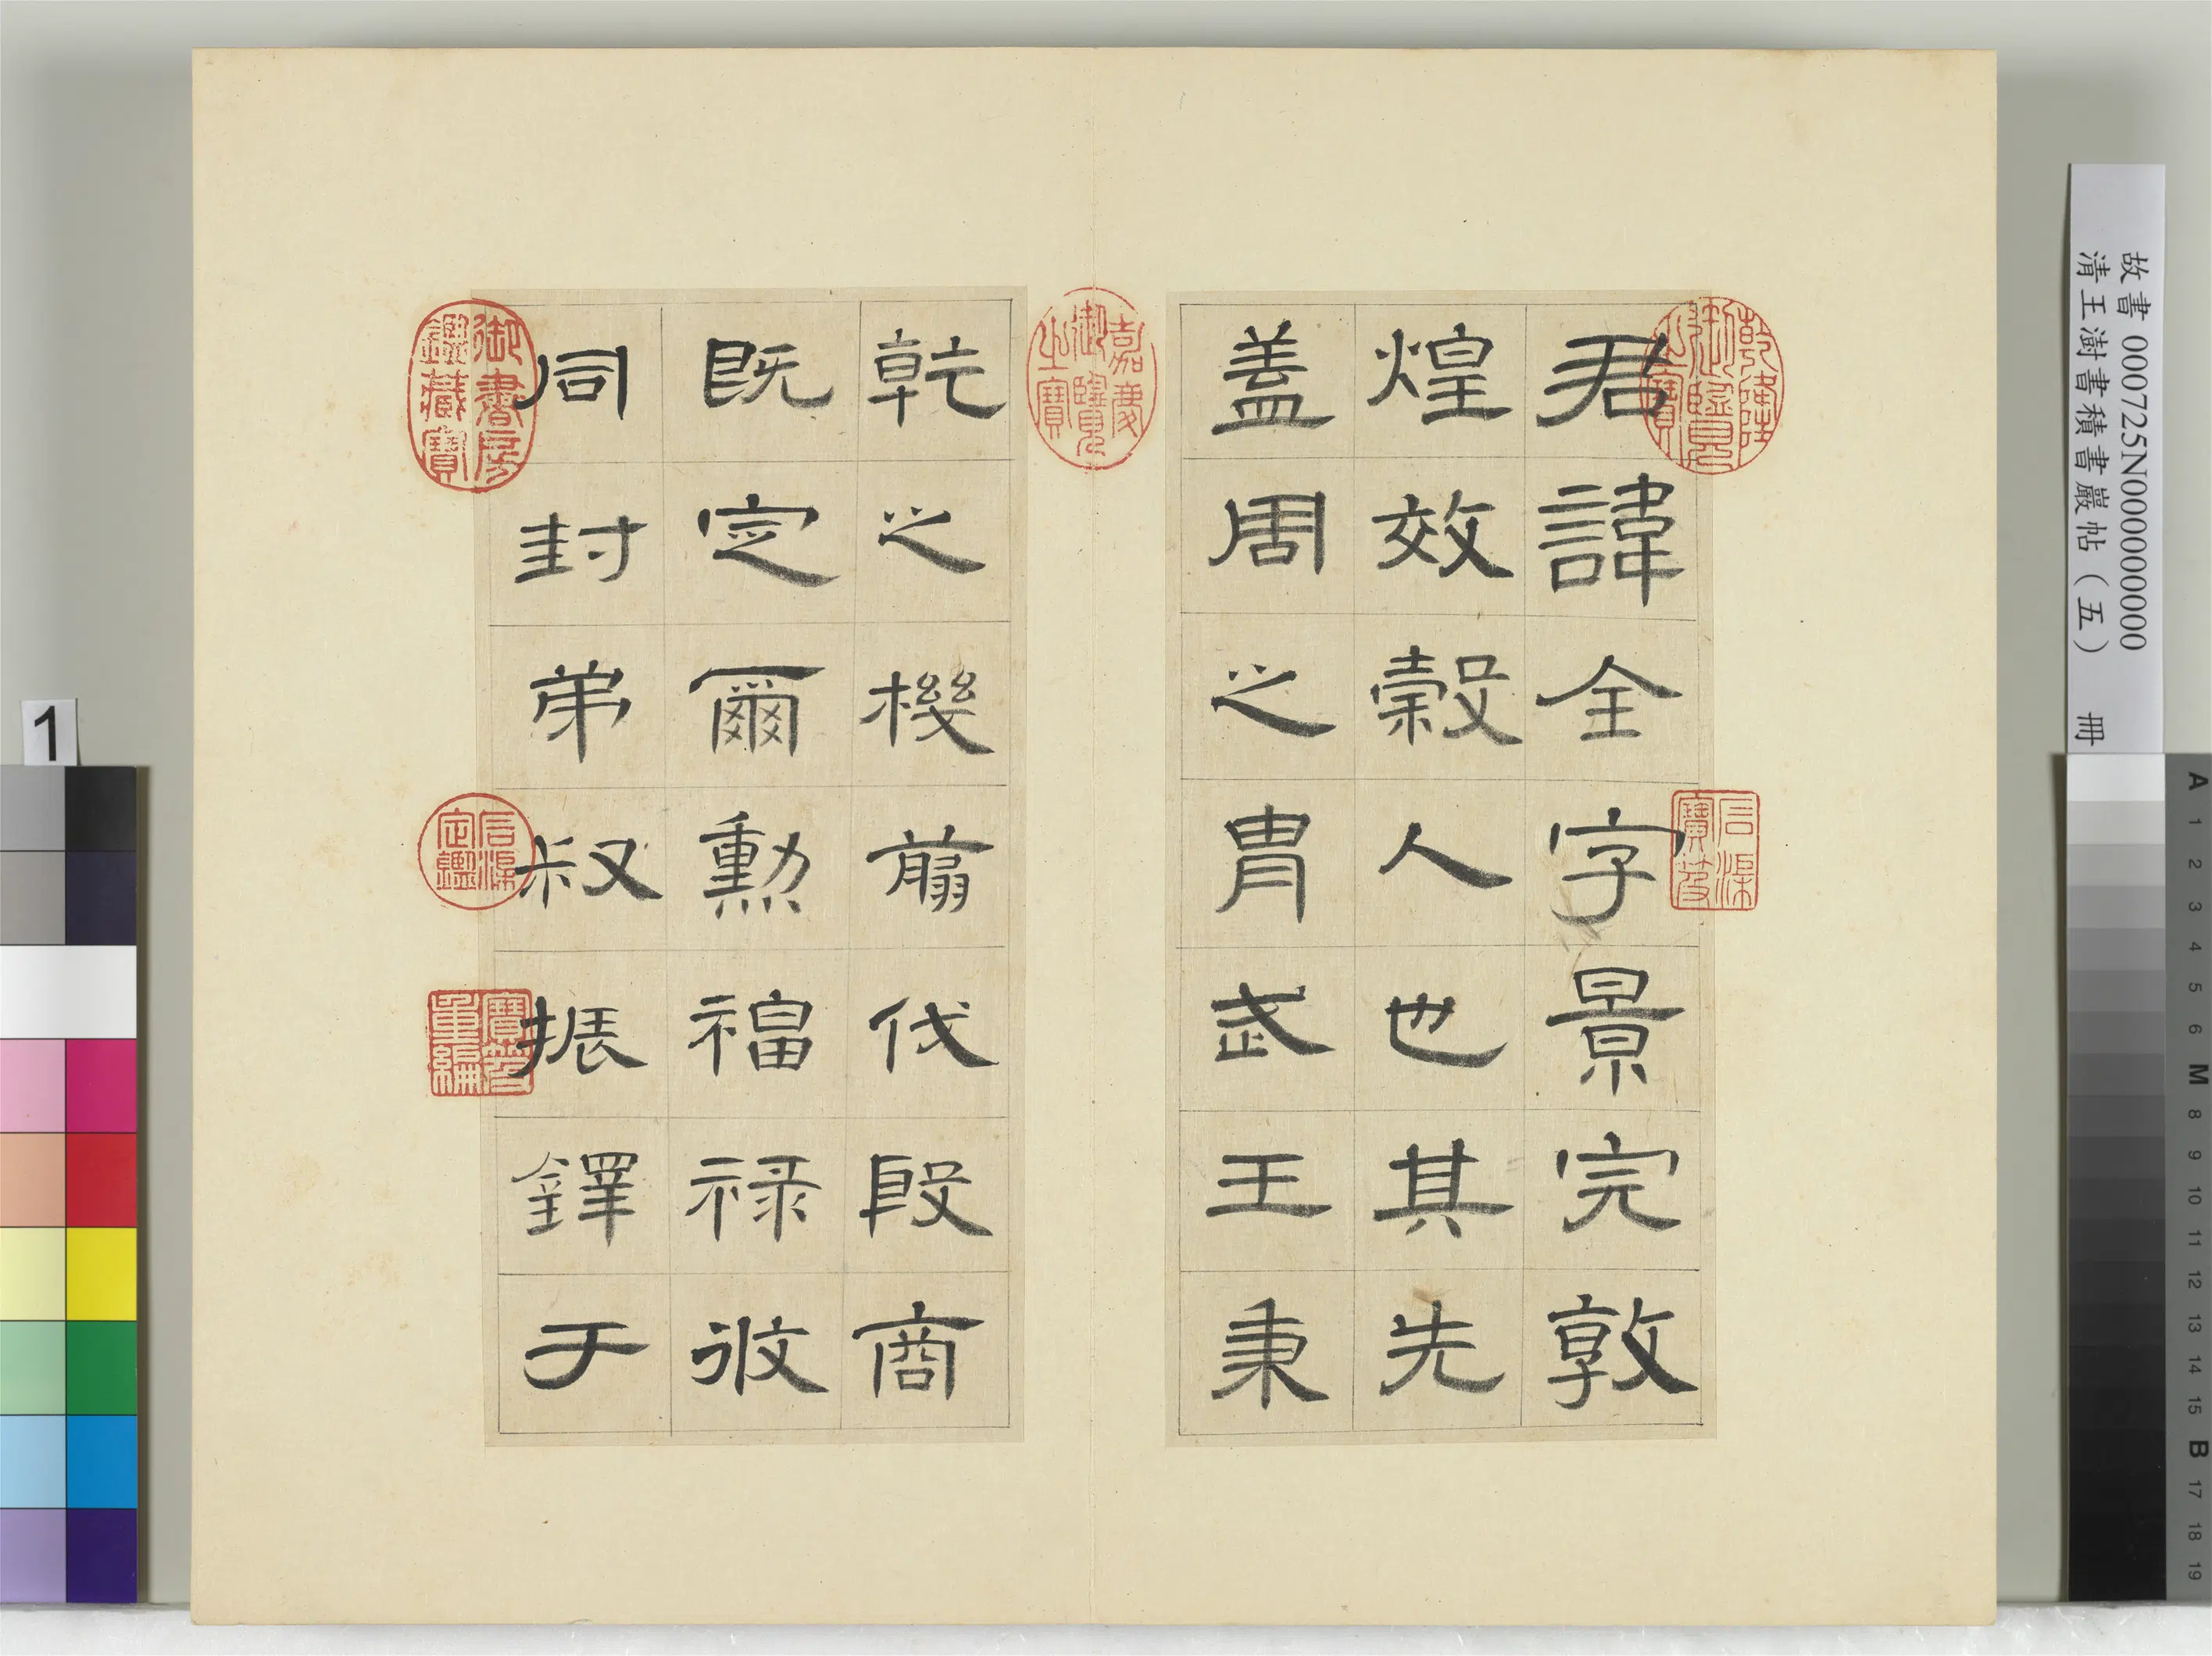 君諱全字景完敦
煌效穀人也其先
蓋周之胄武王秉
乾之機翦伐殷商
既定爾勳福祿攸
同封弟叔振鐸于
乾隆御覽之寶
石渠寶笈
嘉慶御覽之寶
御書房鑑藏寶
石渠定鑑
寶笈重編
故書 000725N000000000
清王澍書積書巖帖(五) 冊
1
A 1 2 3 4 5 6 M 8 9 10 11 12 13 14 15 B 17 18 19